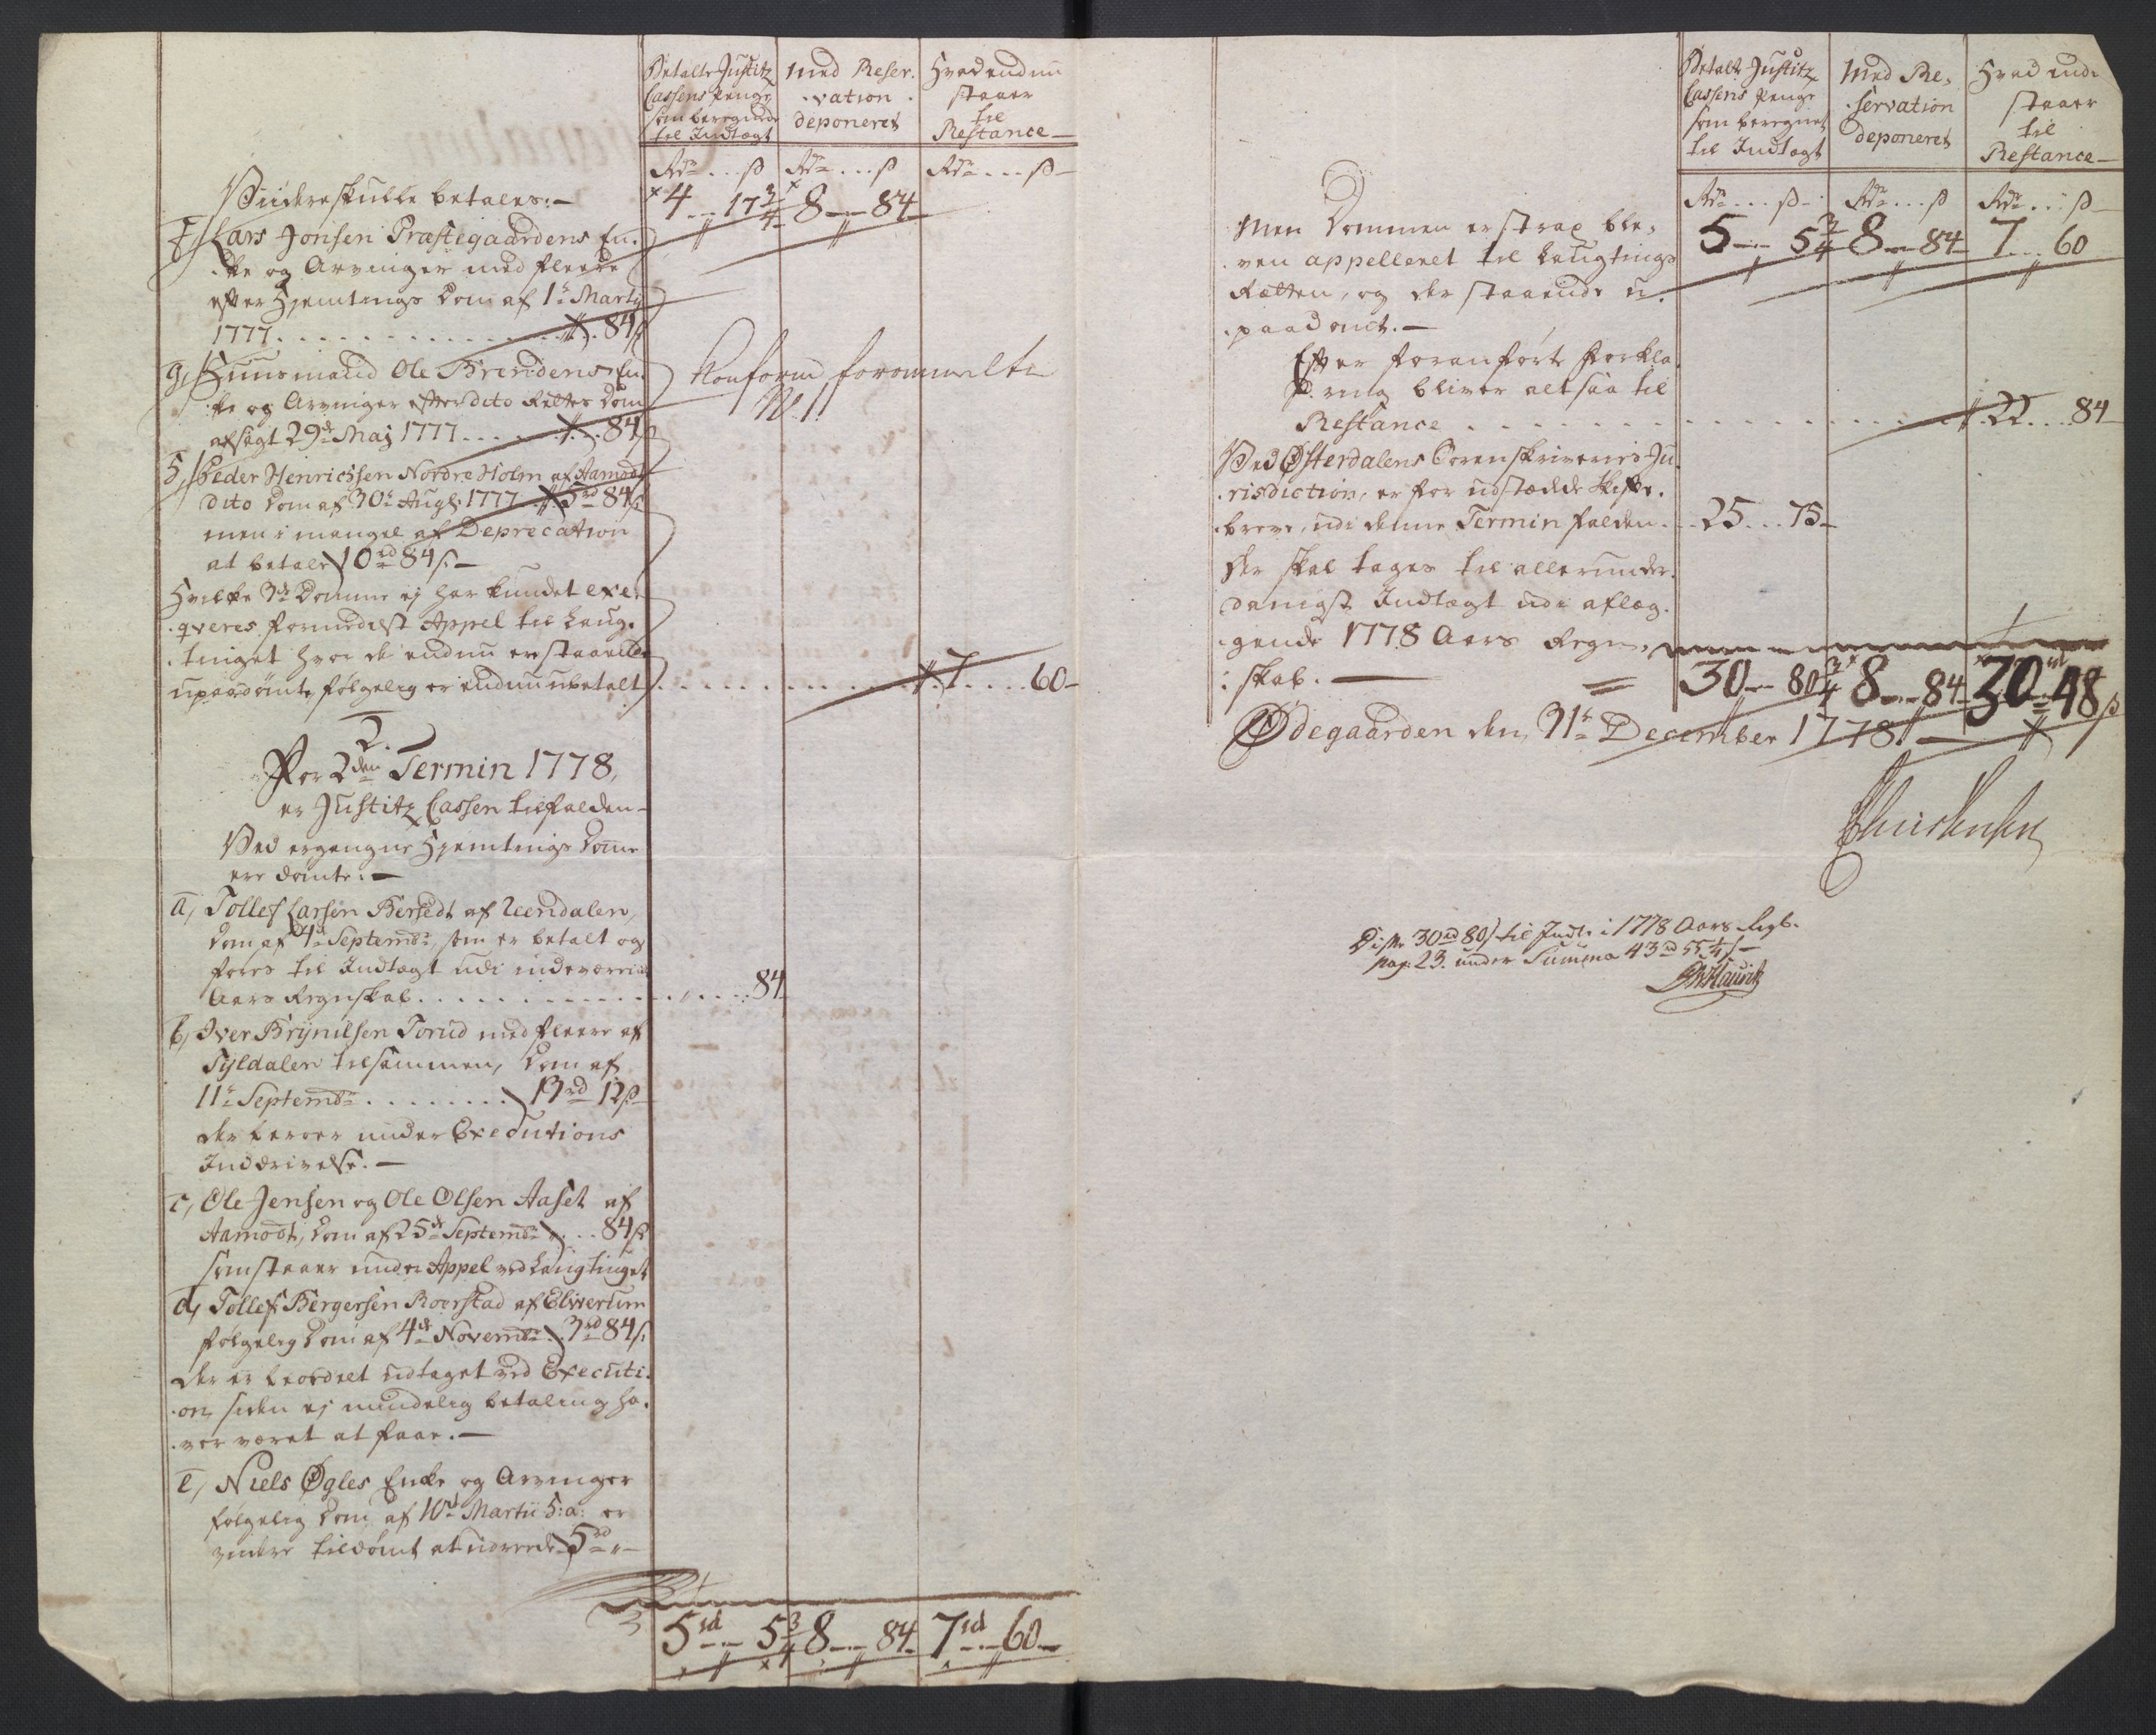 Betalte Justitz
Cassens Penge
som beregnede
til Indtægt
Med Reser-
vation
deponeret
Hvad endnu
staaer
til
Restance
Rdr ... ß Rdr ... ß Rdr ... ß
Viidere skulle betales:
4 .. 17 3/4 8 .. 84
f, Lars Jonsen Præstegaardens En-
ke og Arvinger med fleere
efter Hjemtings Dom af 1te Martij
1777 . . . . 84 ß
g, Huusmand Ole Brendens En-
ke og Arvinger efter dito Rettes Dom
afsagt 29de Maj 1777 . . . . 84 ß
Konform formeldte
h, Peder Henrichsen Nordre Holm af Aamodt
dito Dom af 30te Augs. 1777 5 rd 84 ß
men i mangel af Deprecation
at betale 10 rd 84 ß.
Hvilke 3de Domme ej har kundet exe-
qveres formedelst Appel til Laug-
tinget hvor de endnu er staaende
upaadømte, følgelig er endnu ubetalt . . . . 7 .... 60
2.
For 2den Termin 1778,
er Justitz Cassen tilfalden
Ved ergangne Hjemtings Domme
ere dømte:
a, Tollef Larsen Bersedt af Reendalen,
Dom af 4de Septembr, som er betalt og
føres til Indtægt udi indeværende
Aars Regnskab . . . . 84
b, Iver Brynilsen Torud med fleere af
Tyldalen tilsammen, Dom af
11te Septembr . . . . 13 rd 12 ß
der beroer under Executions
Inddrivelse.
c, Ole Jensen og Ole Olsen Aaset af
Aamodt, Dom af 25de Septembr . . 84 ß
som staaer under Appel ved Laugtinget
d, Tollef Bergersen Roerstad af Elwerum
følgelig Dom af 4de Novembr . 3 rd 84 ß
der er beordret udtaget ved Executi-
on, siden ej mindelig betaling ha-
ver været at faae.
e, Niels Øgles Enke og Arvinger
følgelig Dom af 10de Martii h: a: er
tildømt at udreede 5 rd "
5 rd .. 5 3/4 8 .. 84 7 rd .. 60
Betalte Justitz
Cassens Penge
som beregnet
til Indtægt
Med Re-
servation
deponeret
Hvad endnu
staaer
til
Restance
Rdr ... ß Rdr ... ß Rdr ... ß
5 .. 5 3/4 8 .. 84 7 ... 60
Men Dommen er strax ble-
ven appelleret til Laugtings
Retten, og der staaende u-
paadømt.
Efter foranførte Forkla-
ring bliver altsaa til
Restance . . . . 22 ... 84
Ved Østerdalens Sorenskriveries Ju-
risdiction, er for udstædde Skifte-
breve, udi denne Termin falden . . 25 ... 75
der skal tages til allerunder-
danigst Indtægt udi aflæg-
gende 1778 Aars Regn-
skab. = 30 .. 80 3/4 8 .. 84 30 rd 48 ß
Ødegaarden den 31te December 1778.
Disse 30 rd 80 ß til Indt. i 1778 Aars Regb.
pag: 23. under Summa 43 rd 55 1/4 ß